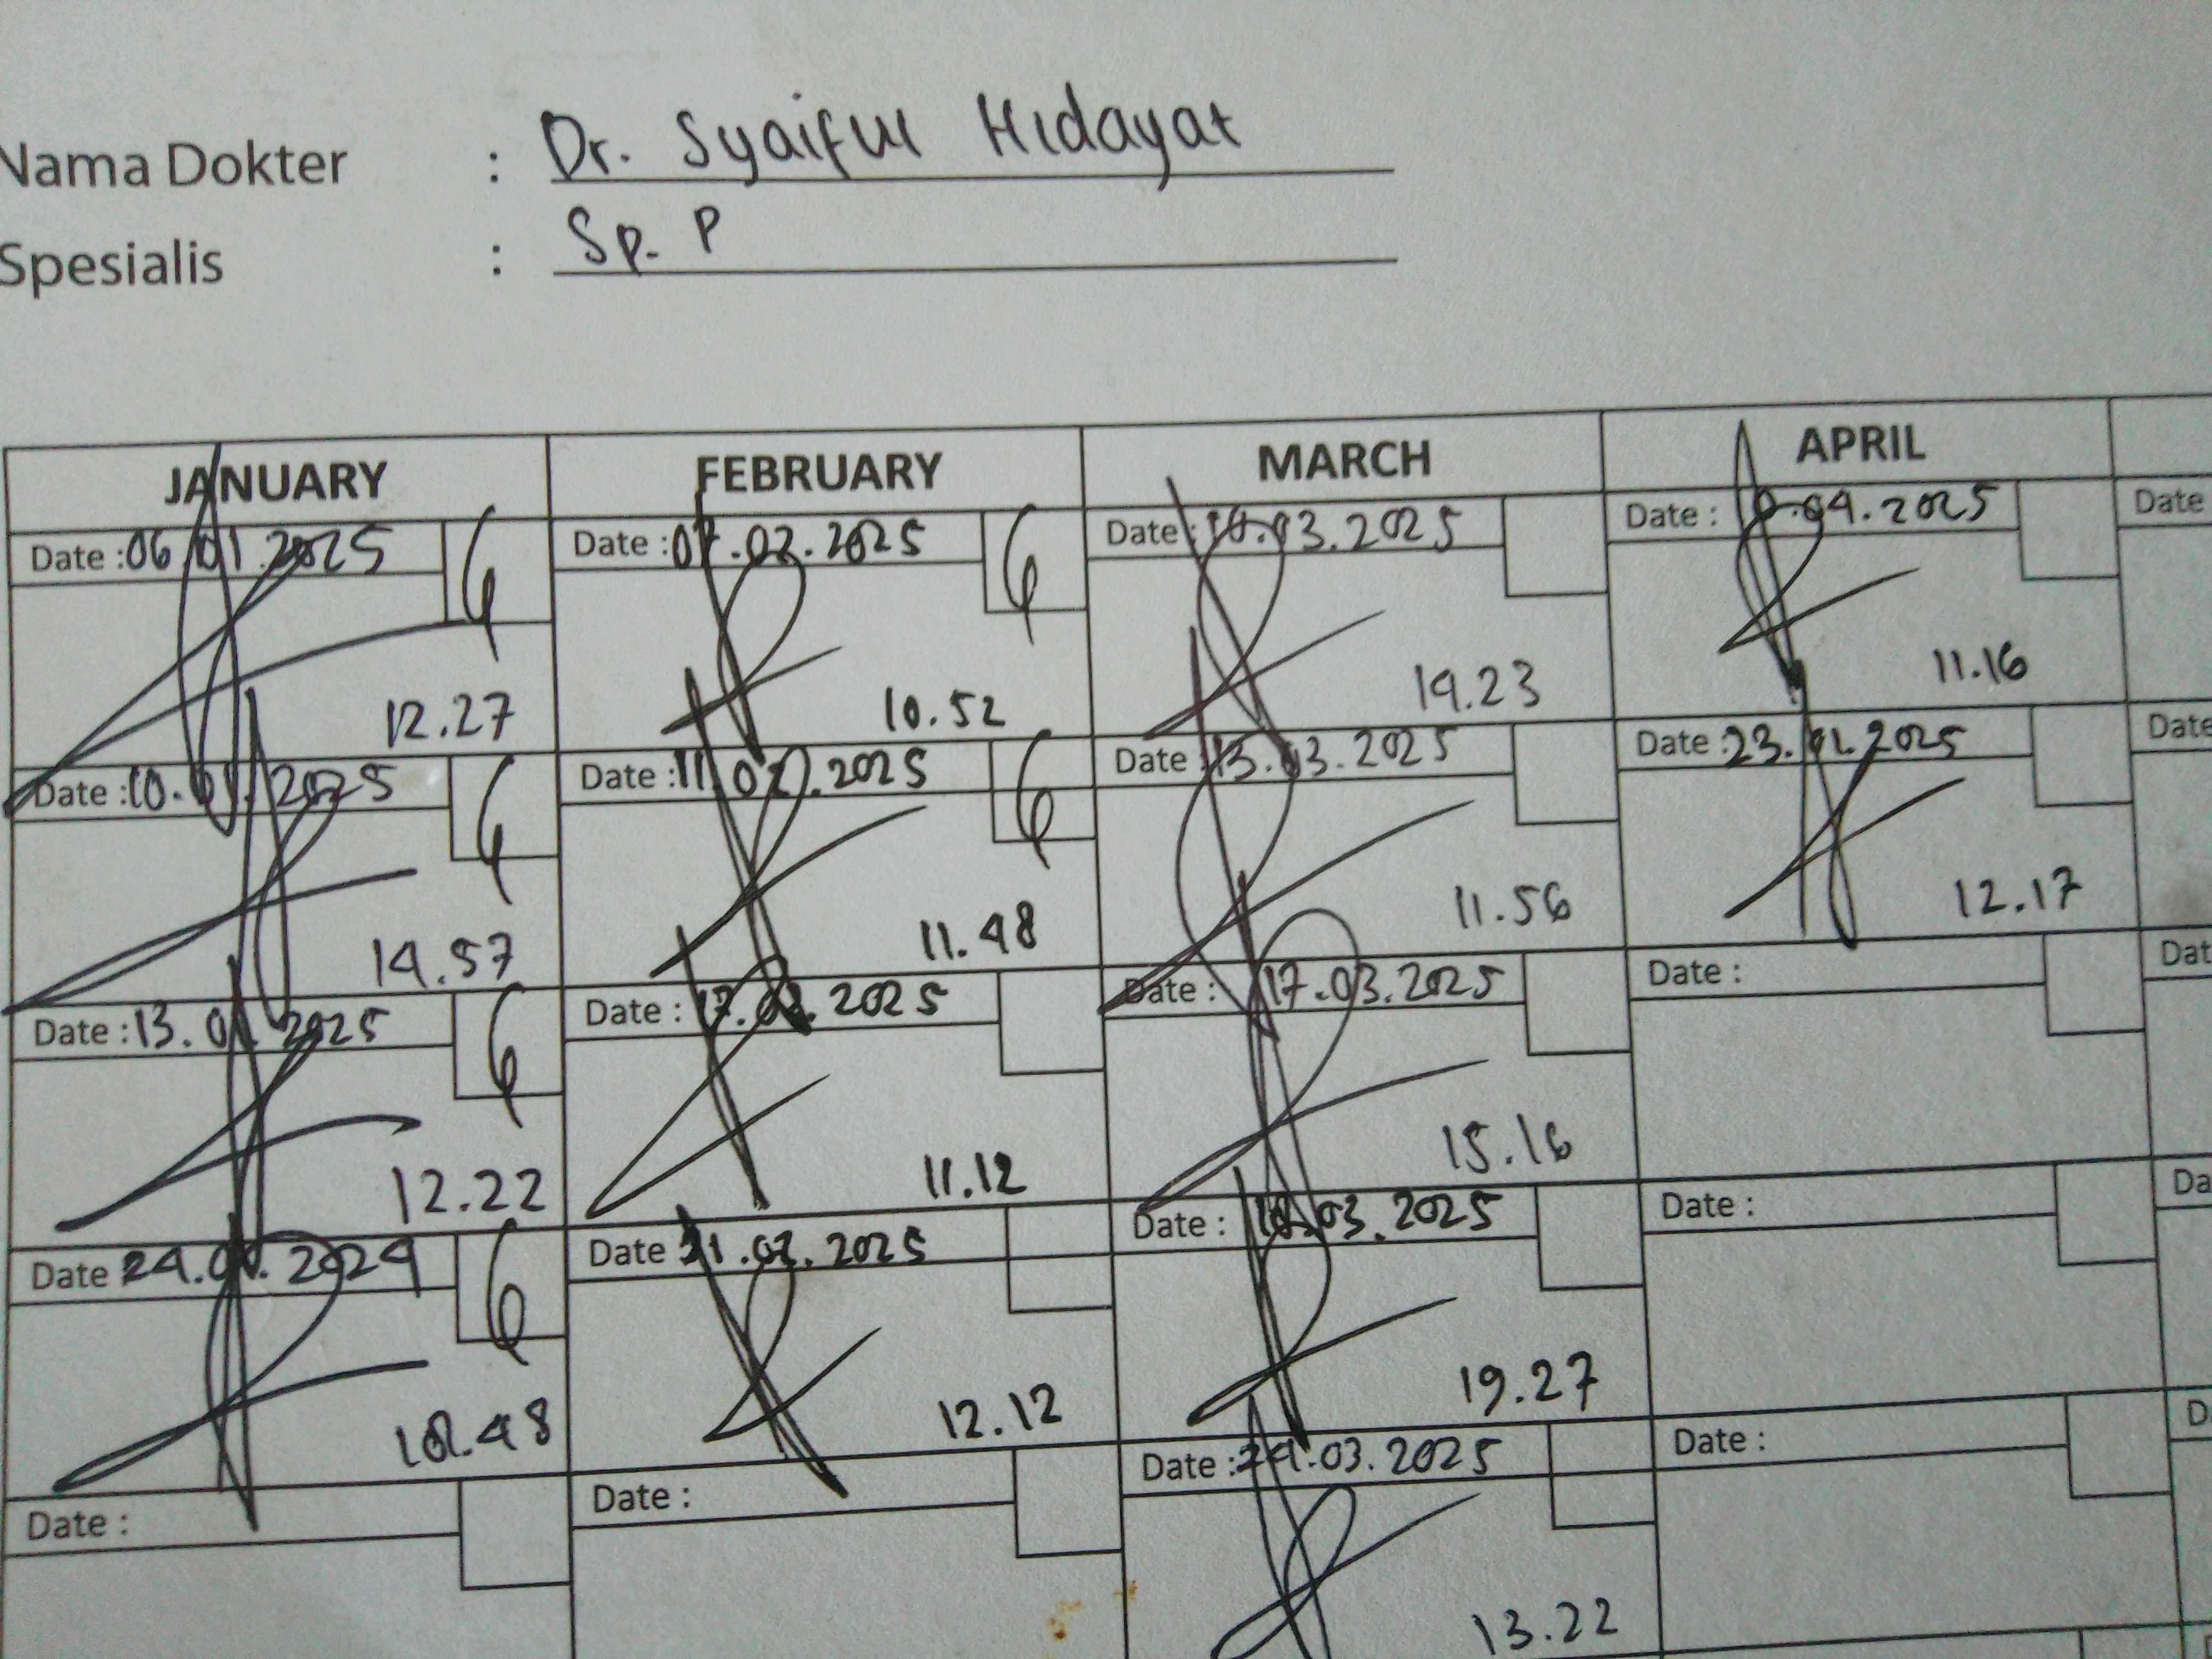 Nama Dokter : Dr. Syaiful Hidayat
Spesialis : Sp. P
JANUARY FEBRUARY MARCH APRIL
Date : 06.01.2025 Date : 07.02.2025 Date : 10.03.2025 Date : .04.2025 Date
12.27 10.52 14.23 11.16
Date : 10.01.2025 Date : 11.02.2025 Date : 13.03.2025 Date : 23. .2025 Date
14.57 11.48 11.56 12.17
Date : 13.01.2025 Date : 17.02.2025 Date : 17.03.2025 Date : Dat
12.22 11.12 15.16
Date 24.01.2024 Date 21.02.2025 Date : .03.2025 Date : Da
.48 12.12 14.27
Date : Date : Date : 24.03.2025 Date : D
13.22